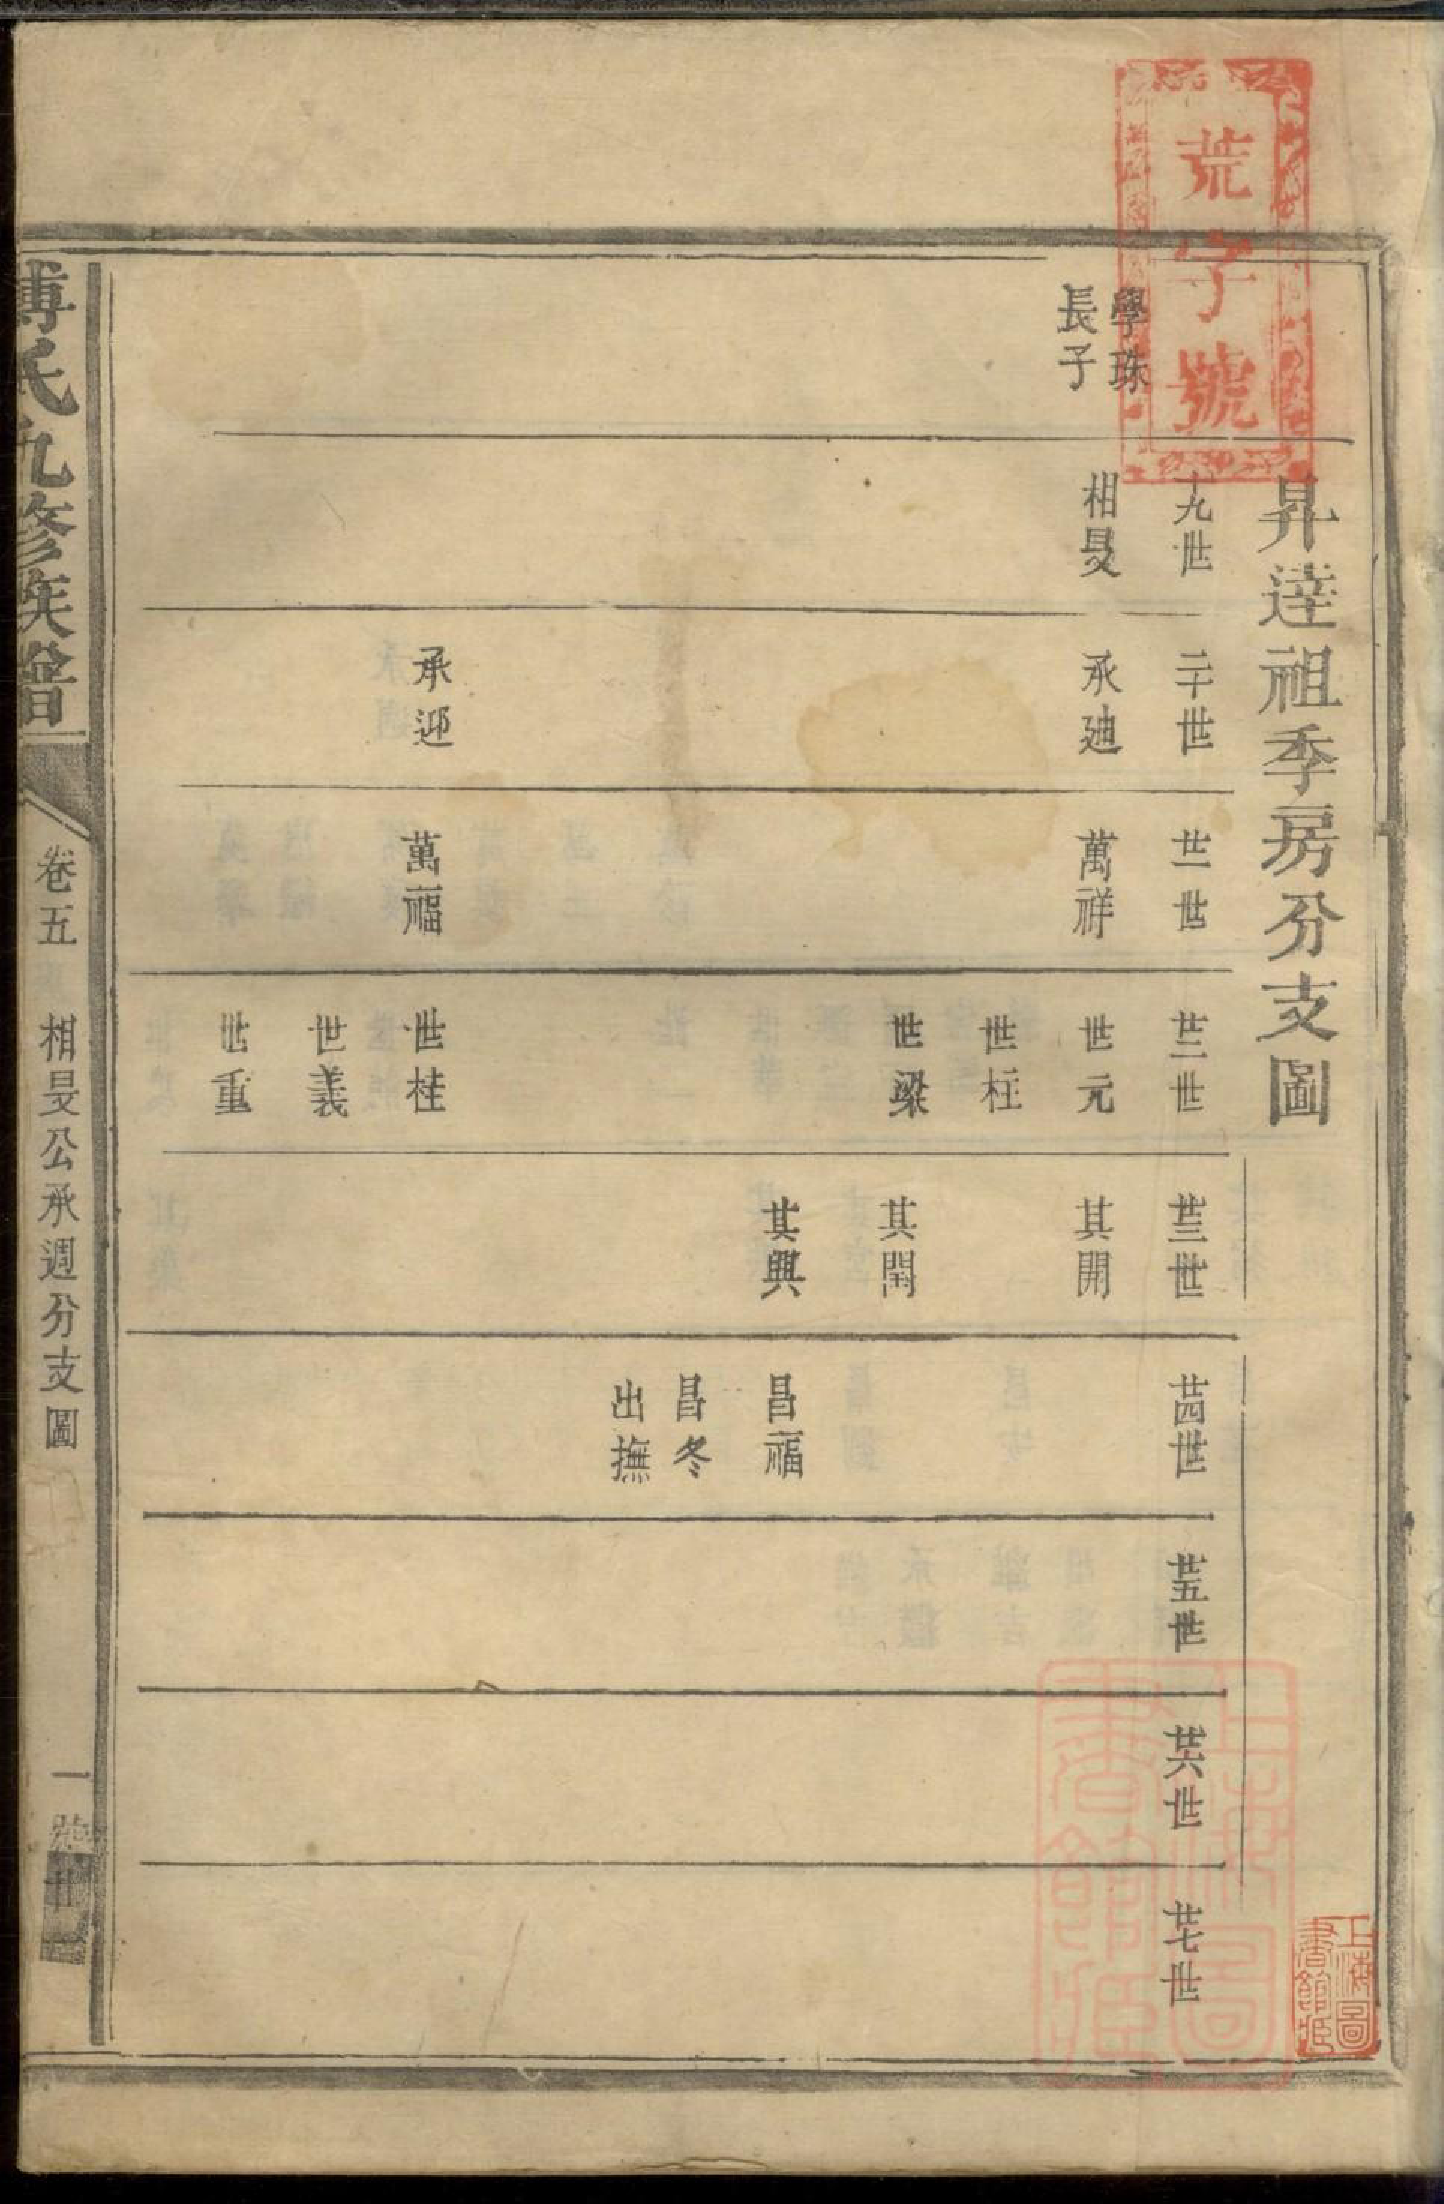 荒字號
昇達祖季房分支圖
學珠
長子
十九世
相旻
二十世
承廸
承迎
廿一世
萬祥
萬福
廿二世
世元
世柱
世梁
世桂
世義
世重
廿三世
其開
其閏
其興
廿四世
昌福
昌冬
出撫
廿五世
廿六世
廿七世
傅氏九修族譜
卷五
相旻公承週分支圖
一號
上海圖書館藏
上海圖書館藏